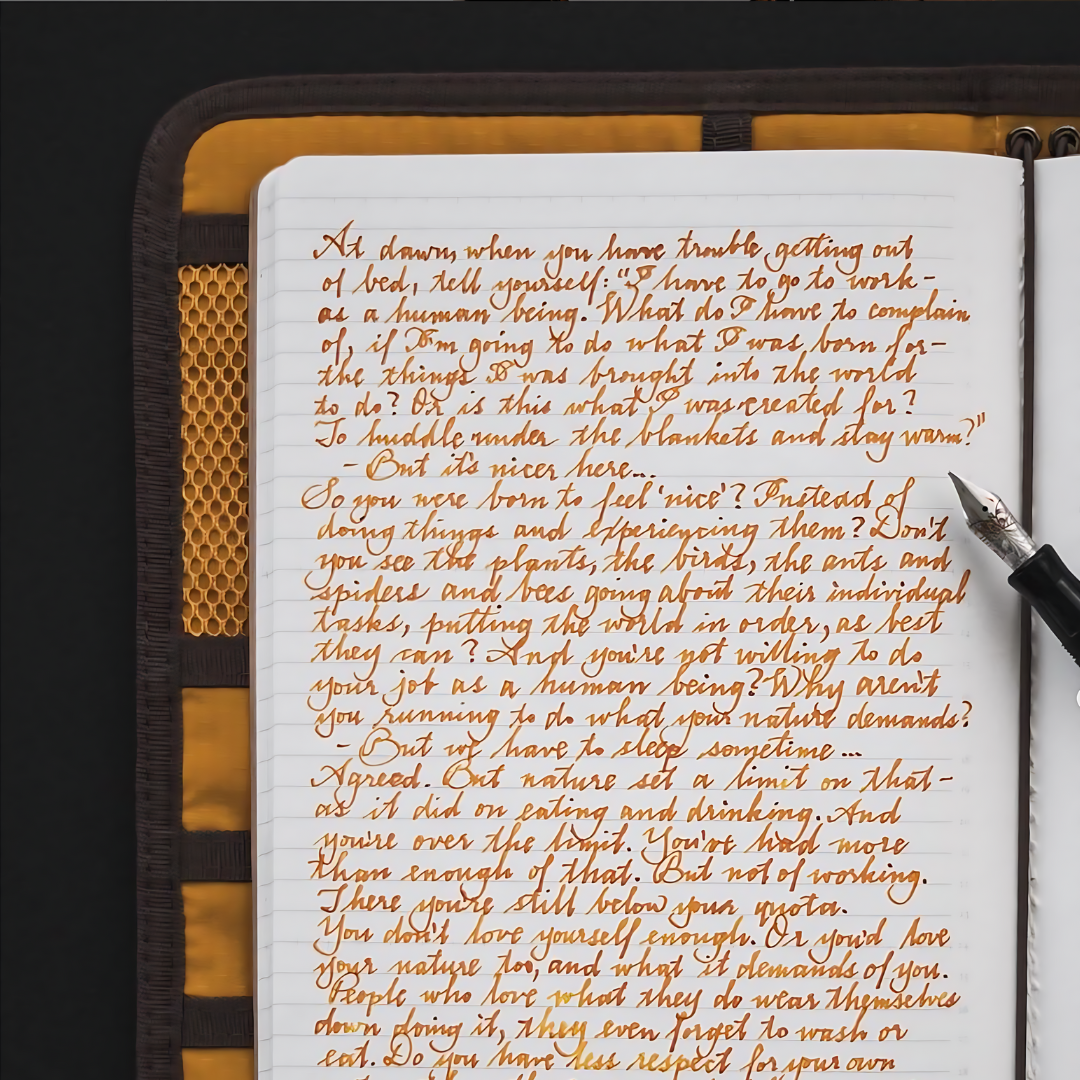 At dawn, when you have trouble getting out
of bed, tell yourself: "I have to go to work–
as a human being. What do I have to complain
of, if I'm going to do what I was born for–
the things I was brought into the world
to do? Or is this what I was created for?
To huddle under the blankets and stay warm?"
– But it's nicer here...
So you were born to feel 'nice'? Instead of
doing things and experiencing them? Don't
you see the plants, the birds, the ants and
spiders and bees going about their individual
tasks, putting the world in order, as best
they can? And you're not willing to do
your job as a human being? Why aren't
you running to do what your nature demands?
– But we have to sleep sometime...
Agreed. But nature set a limit on that–
as it did on eating and drinking. And
you're over the limit. You've had more
than enough of that. But not of working.
There you're still below your quota.
You don't love yourself enough. Or you'd love
your nature too, and what it demands of you.
People who love what they do wear themselves
down doing it, they even forget to wash or
eat. Do you have less respect for your own